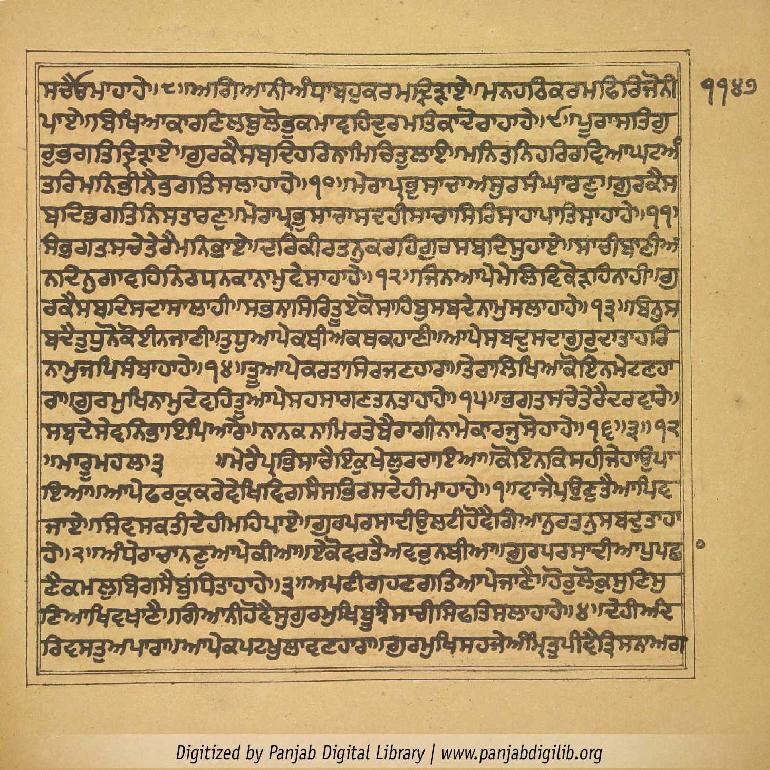 ੧੧੪੭
ਸਚੈਓਮਾਹਾਹੇ॥੮॥ਅਗਿਆਨੀਅੰਧਾਬਹੁਕਰਮਦ੍ਰਿੜਾਏ॥ਮਨਹਠਿਕਰਮਫਿਰਿਜੋਨੀ
ਪਾਏ॥ਬਿਖਿਆਕਾਰਣਿਲਬੁਲੋਭੁਕਮਾਵਹਿਦੁਰਮਤਿਕਾਦੋਰਾਹਾਹੇ॥੯॥ਪੂਰਾਸਤਿਗੁ
ਰੁਭਗਤਿਦ੍ਰਿੜਾਏ॥ਗੁਰਕੈਸਬਦਿਹਰਿਨਾਮਿਚਿਤੁਲਾਏ॥ਮਨਿਤਨਿਹਰਿਰਵਿਆਘਟਅੰ
ਤਰਿਮਨਿਭੀਨੈਭਗਤਿਸਲਾਹਾਹੇ॥੧੦॥ਮੇਰਾਪ੍ਰਭੁਸਾਚਾਅਸੁਰਸੰਘਾਰਣੁ॥ਗੁਰਕੈਸ
ਬਦਿਭਗਤਿਨਿਸਤਾਰਣੁ॥ਮੇਰਾਪ੍ਰਭੁਸਾਚਾਸਦਹੀਸਾਚਾਸਿਰਿਸਾਹਾਪਾਤਿਸਾਹਾਹੇ॥੧੧॥
ਸੇਭਗਤਸਚੇਤੇਰੈਮਨਿਭਾਏ॥ਦਰਿਕੀਰਤਨੁਕਰਹਿਗੁਰਸਬਦਿਸੁਹਾਏ॥ਸਾਚੀਬਾਣੀਅ
ਨਦਿਨੁਗਾਵਹਿਨਿਰਧਨਕਾਨਾਮੁਵੇਸਾਹਾਹੇ॥੧੨॥ਜਿਨਆਪੇਮੇਲਿਵਿਛੋੜਹਿਨਾਹੀ॥ਗੁ
ਰਕੈਸਬਦਿਸਦਾਸਾਲਾਹੀ॥ਸਭਨਾਸਿਰਿਤੂਏਕੋਸਾਹਿਬੁਸਬਦੇਨਾਮੁਸਲਾਹਾਹੇ॥੧੩॥ਬਿਨੁਸ
ਬਦੈਤੁਧੁਨੋਕੋਈਨਜਾਣੀ॥ਤੁਧੁਆਪੇਕਥੀਅਕਥਕਹਾਣੀ॥ਆਪੇਸਬਦੁਸਦਾਗੁਰੁਦਾਤਾਹਰਿ
ਨਾਮੁਜਪਿਸੰਬਾਹਾਹੇ॥੧੪॥ਤੂਆਪੇਕਰਤਾਸਿਰਜਣਹਾਰਾ॥ਤੇਰਾਲਿਖਿਆਕੋਇਨਮੇਟਣਹਾ
ਰਾ॥ਗੁਰਮੁਖਿਨਾਮੁਦੇਵਹਿਤੂਆਪੇਸਹਸਾਗਣਤਨਤਾਹਾਹੇ॥੧੫॥ਭਗਤਸਚੇਤੇਰੈਦਰਵਾਰੇ॥
ਸਬਦੇਸੇਵਨਿਭਾਇਪਿਆਰੇ॥ਨਾਨਕਨਾਮਿਰਤੇਬੈਰਾਗੀਨਾਮੇਕਾਰਜੁਸੋਹਾਹੇ॥੧੬॥੩॥੧੨
॥ਮਾਰੂਮਹਲਾ੩ ॥ਮੇਰੈਪ੍ਰਭਿਸਾਚੈਇਕੁਖੇਲੁਰਚਾਇਆ॥ਕੋਇਨਕਿਸਹੀਜੇਹਾਉਪਾ
ਇਆ॥ਆਪੇਫਰਕੁਕਰੇਵੇਖਿਵਿਗਸੈਸਭਿਰਸਦੇਹੀਮਾਹਾਹੇ॥੧॥ਵਾਜੈਪਉਣੁਤੈਆਪਿਵ
ਜਾਏ॥ਸਿਵਸਕਤੀਦੇਹੀਮਹਿਪਾਏ॥ਗੁਰਪਰਸਾਦੀਉਲਟੀਹੋਵੈਗਿਆਨੁਰਤਨੁਸਬਦੁਤਾਹਾ
ਹੇ॥੨॥ਅੰਧੇਰਾਚਾਨਣੁਆਪੇਕੀਆ॥ਏਕੋਵਰਤੈਅਵਰੁਨਬੀਆ॥ਗੁਰਪਰਸਾਦੀਆਪੁਪਛਾ
ਣੈਕਮਲੁਬਿਗਸੈਬੁਧਿਤਾਹਾਹੇ॥੩॥ਅਪਣੀਗਹਣਗਤਿਆਪੇਜਾਣੈ॥ਹੋਰੁਲੋਕੁਸੁਣਿਸੁ
ਣਿਆਖਿਵਖਾਣੈ॥ਗਿਆਨੀਹੋਵੈਸੁਗੁਰਮੁਖਿਬੂਝੈਸਾਚੀਸਿਫਤਿਸਲਾਹਾਹੇ॥੪॥ਦੇਹੀਅੰਦ
ਰਿਵਸਤੁਅਪਾਰਾ॥ਆਪੇਕਪਟਖੁਲਾਵਣਹਾਰਾ॥ਗੁਰਮੁਖਿਸਹਜੇਅੰਮ੍ਰਿਤੁਪੀਵੈਤ੍ਰਿਸਨਾਅਗ
Digitized by Panjab Digital Library | www.panjabdigilib.org